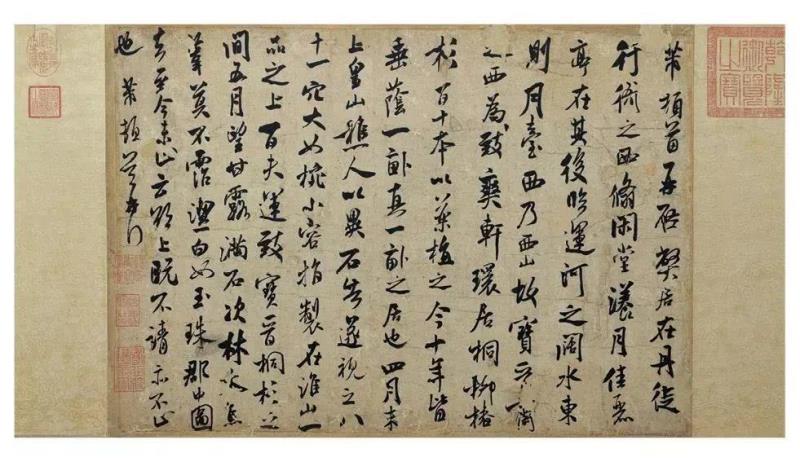 乾隆御覽之寶
芾頓首再啟弊居在丹徒
行衙之西翛閑堂漾月佳麗
亭在其後臨運河之闊水東
則月臺西乃西山故寶晉齋
之西為致爽軒環居桐柳椿
杉百十本以藥植之今十年皆
垂蔭一畝真一畝之居也四月末
上皇山樵人以異石告遂視之八
十一穴大如椀小容指製在淮山一
品之上百夫運致寶晉桐杉之
間五月望甘露滿石次林木焦
葦莫不霑潔白如玉珠郡中圖
去至今未止云欲上既不請亦不止
也 芾頓首